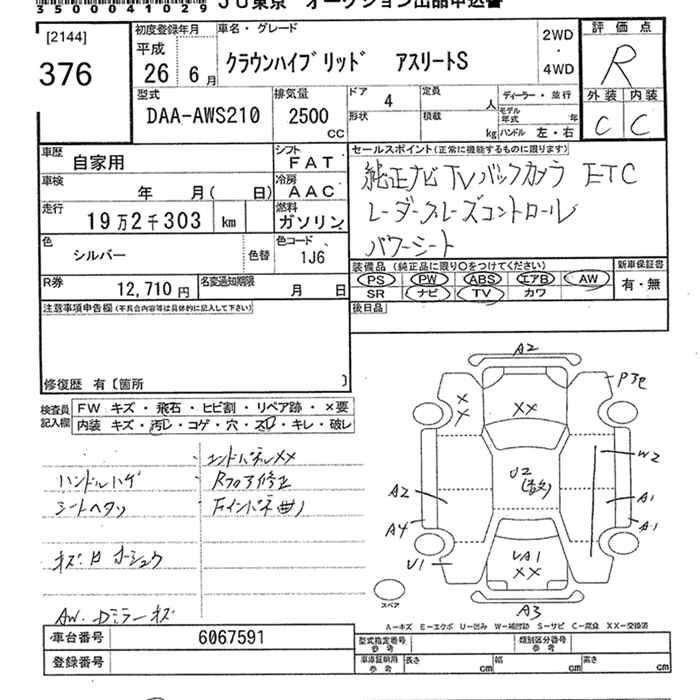 3500041029 JU東京 オークション出品申込書
[2144]
376
初度登録年月
平成
26年6月
車名・グレード
クラウンハイブリッド アスリートS
2WD
・
4WD
評価点
R
外装 内装
C C
型式
DAA-AWS210
排気量
2500
CC
ドア 4
形状
定員 人
積載 kg
ディーラー・並行
モデル年式 年
ハンドル 左・右
車歴 自家用
シフト FAT
車検 年 月( 日)
冷房 AAC
走行 19万2千303 km
燃料 ガソリン
色 シルバー 色替
色コード 1J6
R券 12,710円
名変通知期限 月 日
セールスポイント(正常に機能するものに限ります)
純正ナビ TV バックカメラ ETC
レーダークルーズコントロール
パワーシート
装備品 (純正品に限り○をつけてください)
PS PW ABS エアB AW
SR ナビ TV カワ
新車保証書
有・無
後日品
注意事項申告欄(不具合内容等は具体的に記入して下さい)
修復歴 有〔箇所 〕
検査員記入欄
FW キズ・飛石・ヒビ割・リペア跡・×要
内装 キズ・汚レ・コゲ・穴・スレ・キレ・破レ
エンドパネルXX
ハンドルハゲ Rフロア修正
シートヘタリ Fインパネ曲り
AW.Dミラーキズ
A2
P3
XX
X
X
W2
U2
A2
A1
A4
A1
U1
UA1
XX
A3
スペア
A-キズ E-エクボ U-凹み W-補修跡 S-サビ C-腐食 XX-交換済
車台番号 6067591
登録番号
型式指定番号 参考
類別区分番号 参考
車庫証明用 参考
長さ cm 幅 cm 高さ cm